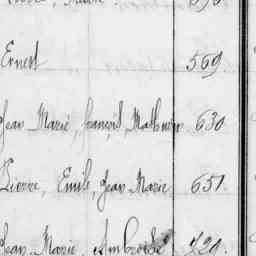 Ernest 569.
Jean Marie, François Mathurin 630
Pierre, Emile, Jean Marie 651.
Jean Marie Ambroise 720.